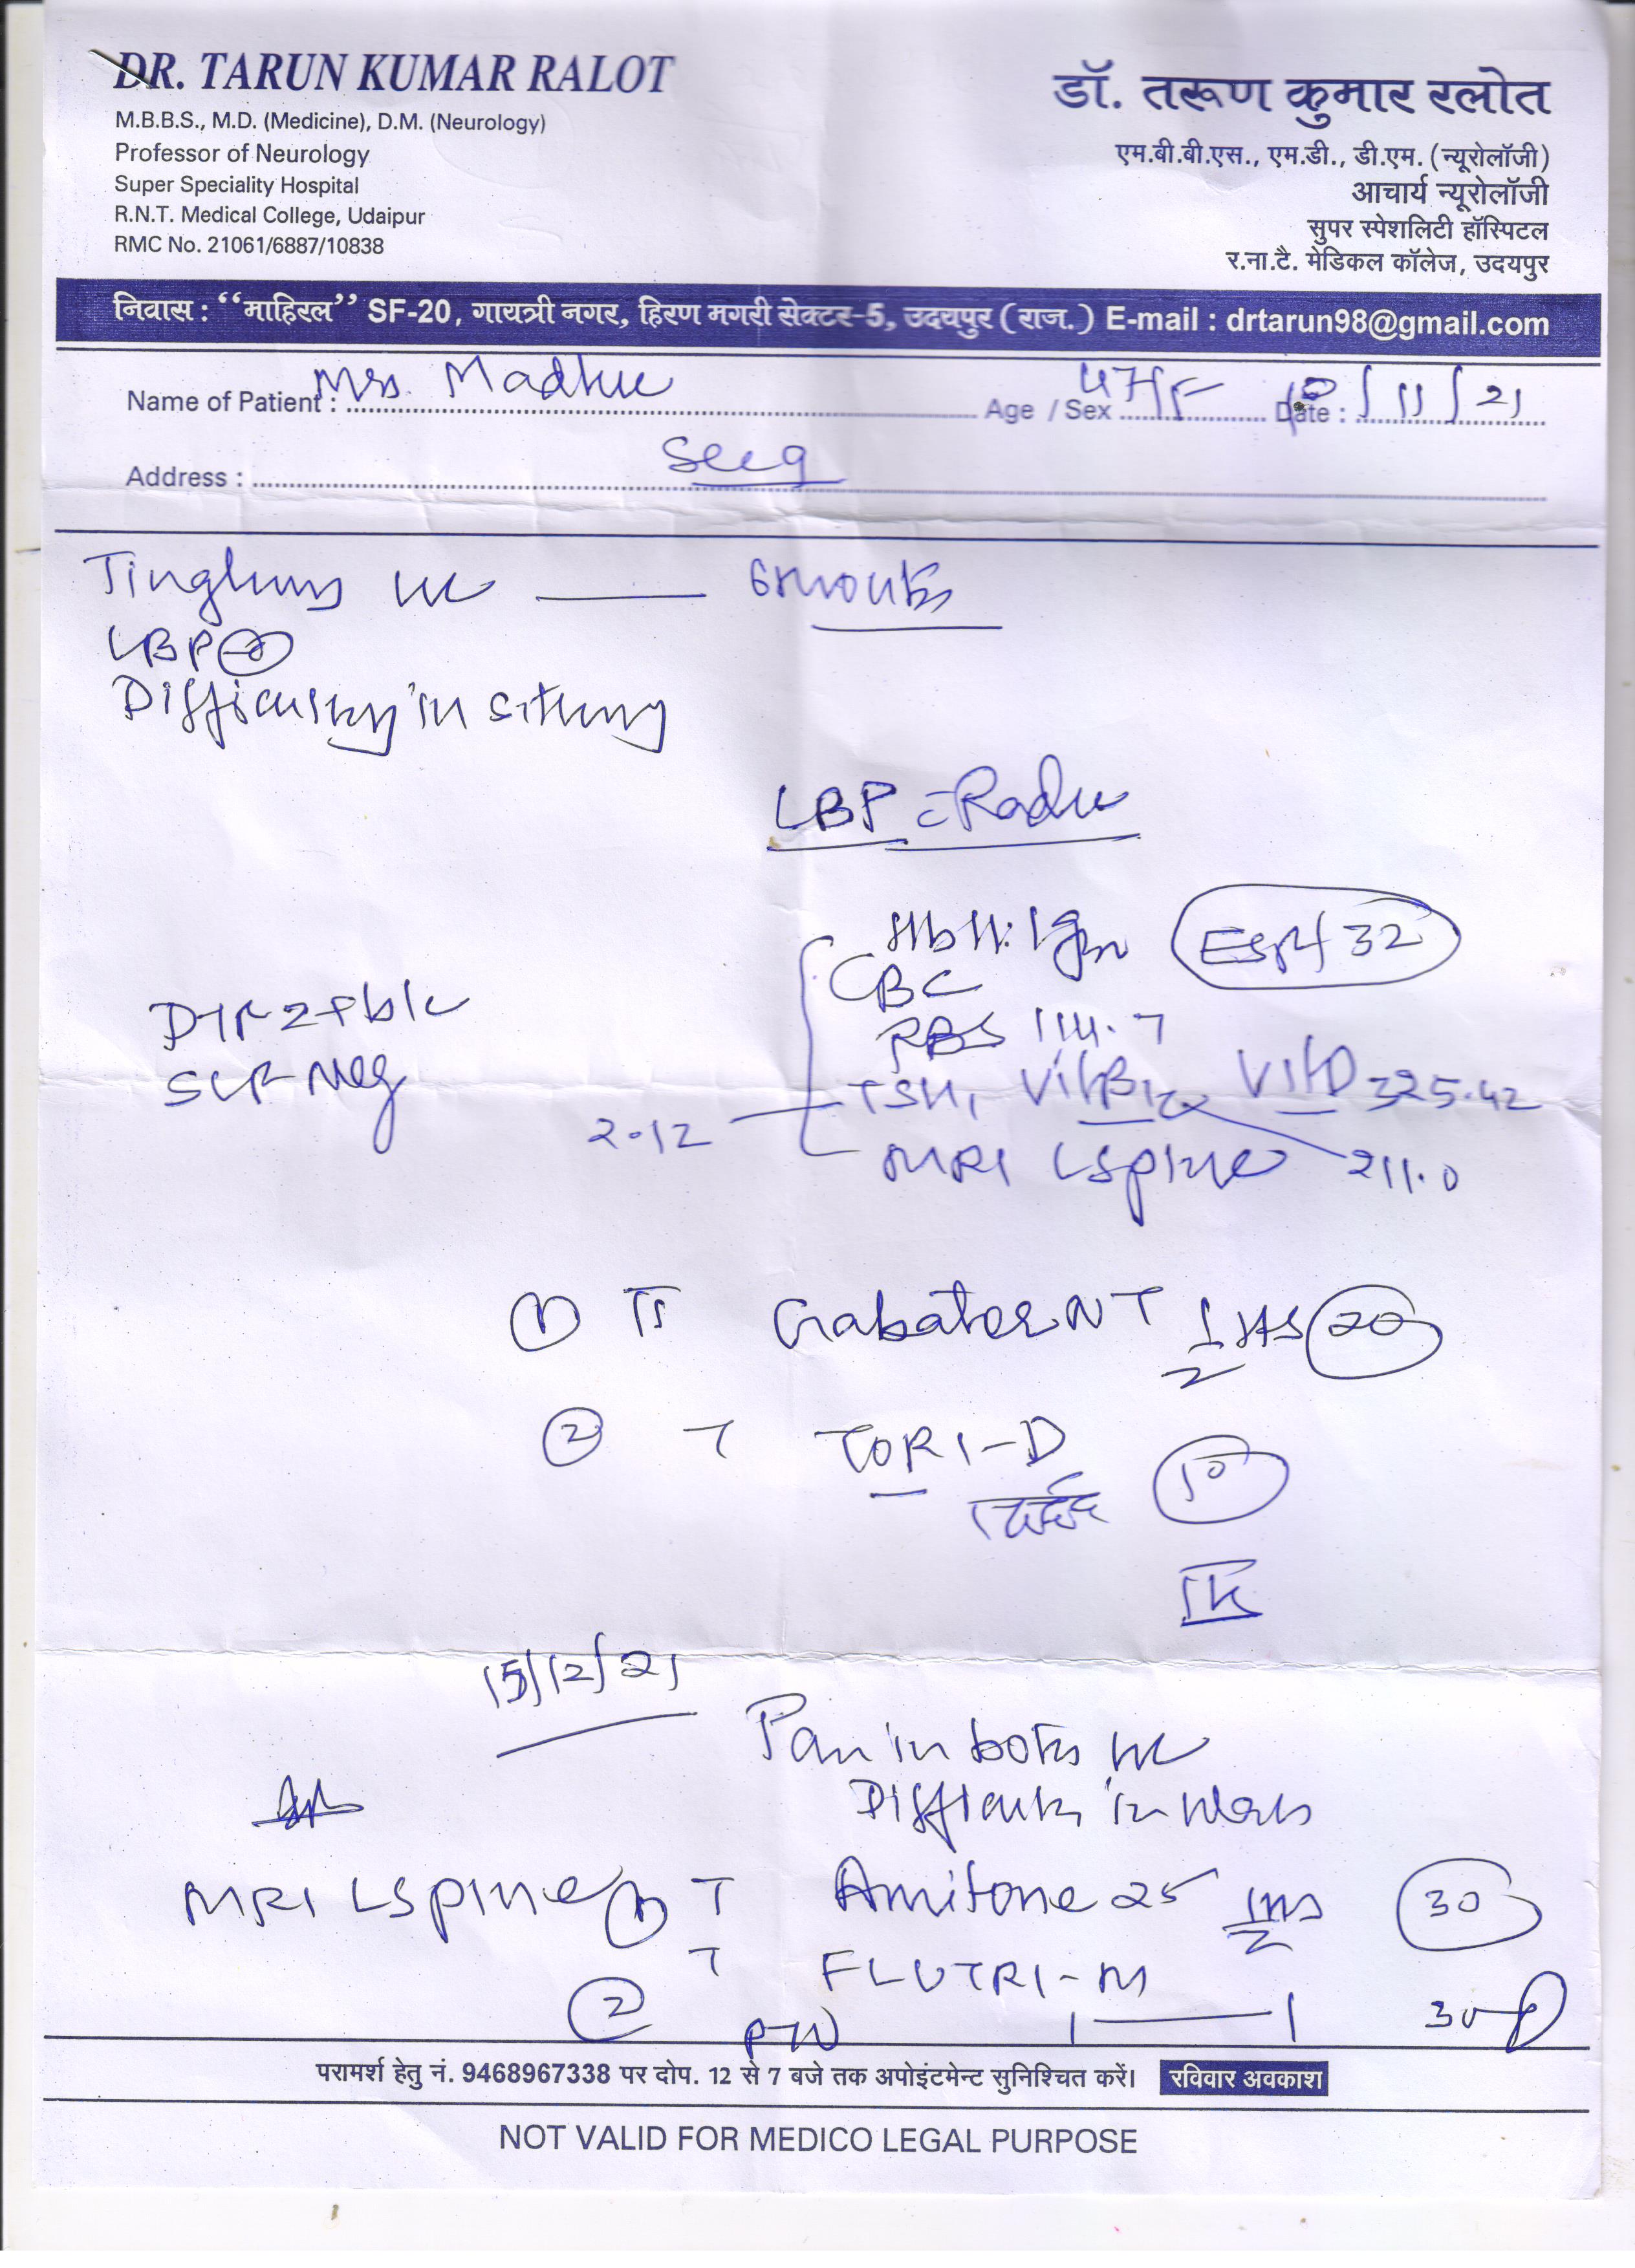 DR. TARUN KUMAR RALOT
M.B.B.S., M.D. (Medicine), D.M. (Neurology)
Professor of Neurology
Super Speciality Hospital
R.N.T. Medical College, Udaipur
RMC No. 21061/6887/10838
डॉ. तरूण कुमार रलोत
एम.बी.बी.एस., एम.डी., डी.एम. (न्यूरोलॉजी)
आचार्य न्यूरोलॉजी
सुपर स्पेशलिटी हॉस्पिटल
र.ना.टै. मेडिकल कॉलेज, उदयपुर
निवास : “माहिरल” SF-20, गायत्री नगर, हिरण मगरी सेक्टर-5, उदयपुर (राज.) E-mail : drtarun98@gmail.com
Name of Patient : Mrs. Madhu Age / Sex 47/F Date : 10/11/21
Address :
Tingling 6 months
LBP
Difficulty in sitting
LBP
Hb 11.1 gm ESR 32
CBC
RBS 114.7
DTR
SLR Neg
TSH, Vit B12 Vit D 325.42
2.12
MRI LSpine 211.0
① Gabator NT 1 HS 20
② T TORI-D 10
15/12/21
Pain in both
Difficulty in
MRI LSpine ① T Amitone 25 1 HS 30
② T FLUTRI-M
1 — 1 30
परामर्श हेतु नं. 9468967338 पर दोप. 12 से 7 बजे तक अपोइंटमेन्ट सुनिश्चित करें। रविवार अवकाश
NOT VALID FOR MEDICO LEGAL PURPOSE